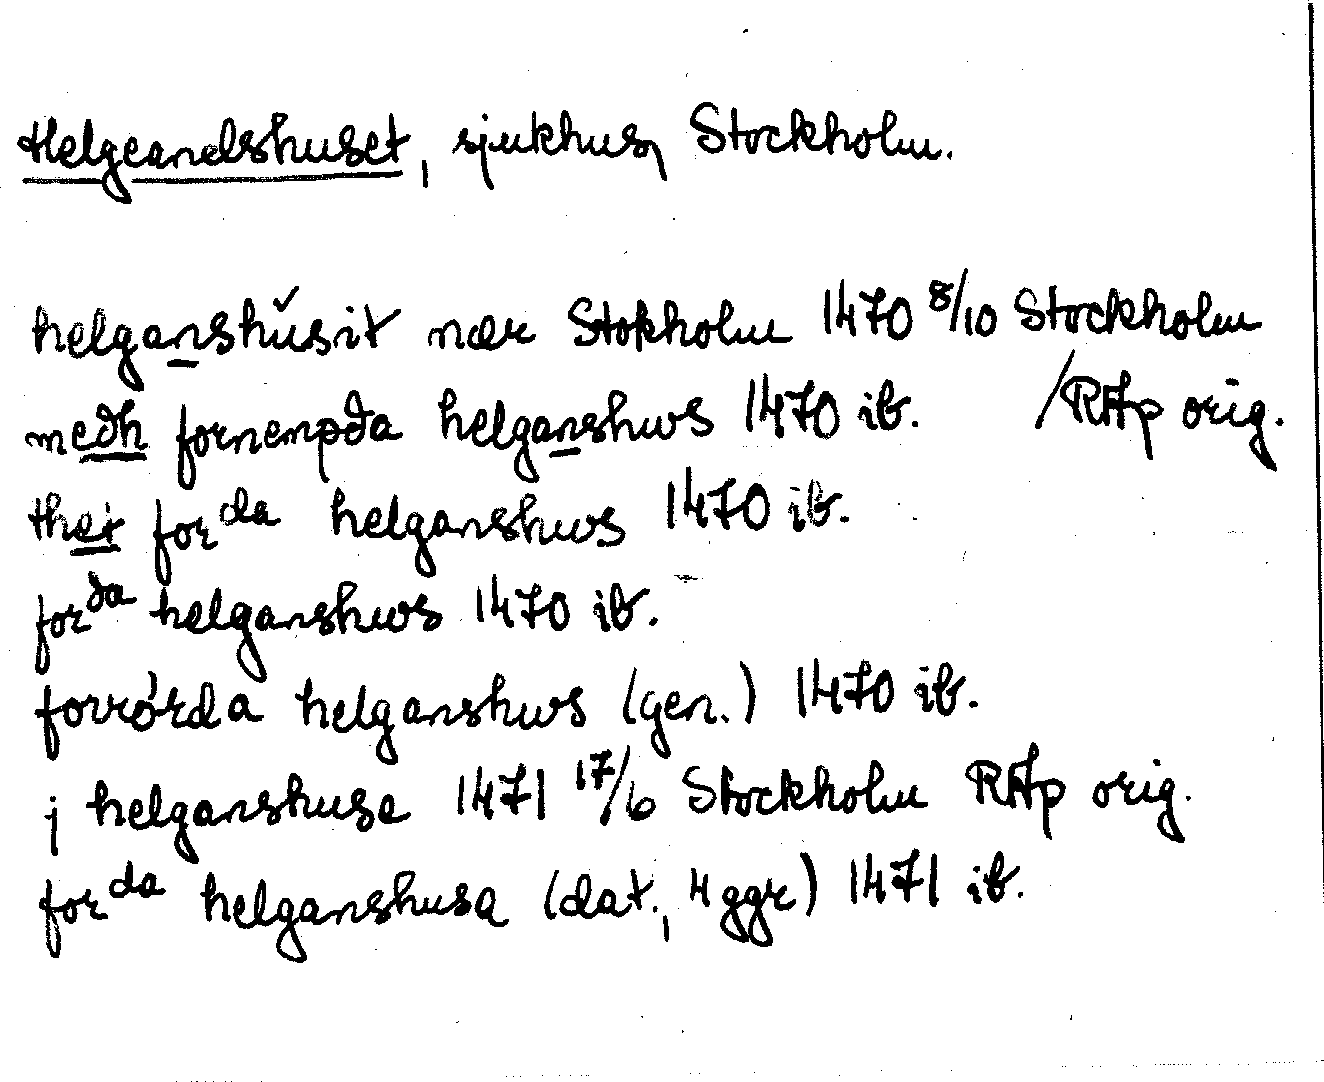 Helgeandshuset, sjukhus, Stockholm.
helganshǔsit nær Stokholm 1470 8/10 Stockholm
medh fornempda helganshws 1470 ib. /RAp orig.
thet forda helganshws 1470 ib.
forda helganshws 1470 ib.
forrórda helganshws (gen.) 1470 ib.
j helganshuse 1471 17/6 Stockholm RAp orig.
forda helganshusa (dat., 4 ggr) 1471 ib.